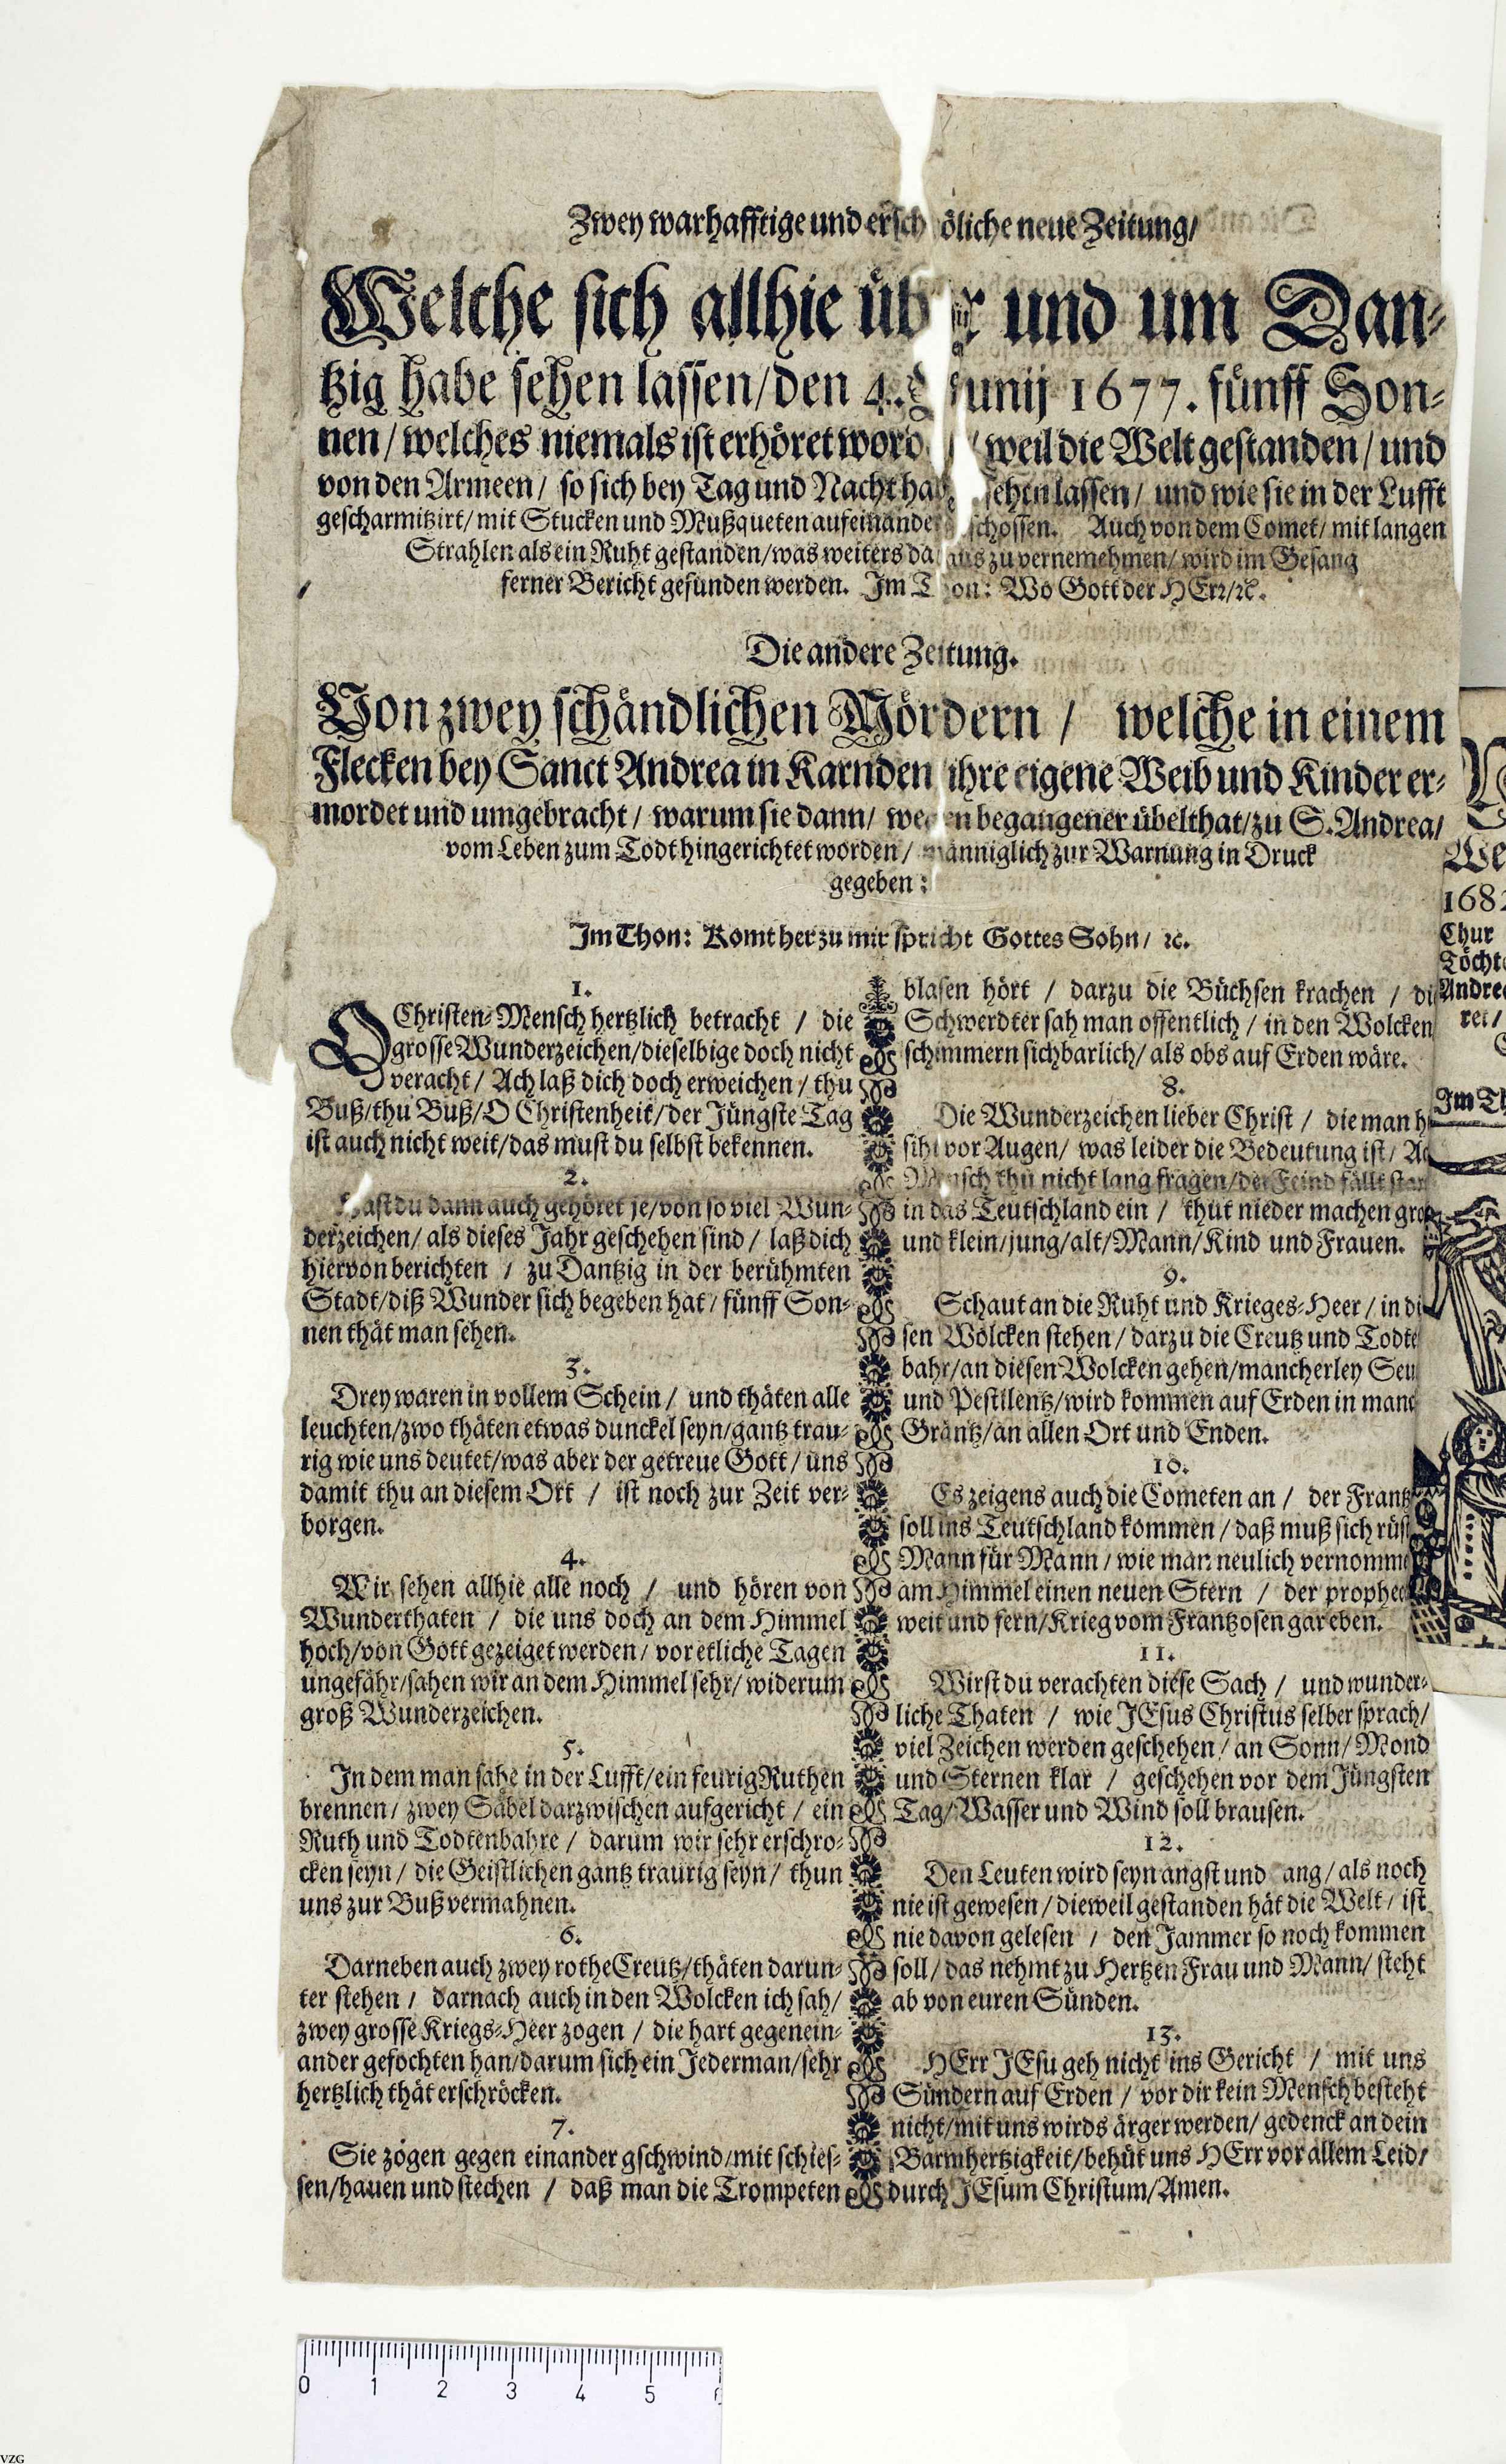 Zwey warhafftige und ersch öliche neue Zeitung/
Welche sich allhie üb r und um Dan-
tzig habe sehen lassen/den 4. Junij 1677. fünff Son-
nen/welches niemals ist erhöret word /weil die Welt gestanden/und
von den Armeen/ so sich bey Tag und Nacht hab sehen lassen/ und wie sie in der Lufft
gescharmitzirt/mit Stucken und Mußqueten aufeinander schossen. Auch von dem Comet/mit langen
Strahlen als ein Ruht gestanden/was weiters daraus zu vernemehmen/wird im Gesang
ferner Bericht gefunden werden. Im Thon: Wo Gott der HErr/ꝛc.
Die andere Zeitung.
Von zwey schändlichen Mördern / welche in einem
Flecken bey Sanct Andrea in Karnden ihre eigene Weib und Kinder er-
mordet und umgebracht/ warum sie dann/ wegen begangener übelthat/zu S. Andrea/
vom Leben zum Todt hingerichtet worden/ männiglich zur Warnung in Druck
gegeben:
Im Thon: Komt her zu mir spricht Gottes Sohn/ ꝛc.
1.
O Christen-Mensch hertzlich betracht / die
grosse Wunderzeichen/dieselbige doch nicht
veracht/ Ach laß dich doch erweichen/ thu
Buß/thu Buß/O Christenheit/der Jüngste Tag
ist auch nicht weit/das must du selbst bekennen.
2.
Hast du dann auch gehöret je/von so viel Wun-
derzeichen/ als dieses Jahr geschehen sind/ laß dich
hiervon berichten / zu Dantzig in der berühmten
Stadt/diß Wunder sich begeben hat/ fünff Son-
nen thät man sehen.
3.
Drey waren in vollem Schein/ und thäten alle
leuchten/zwo thäten etwas dunckel seyn/gantz trau-
rig wie uns deutet/was aber der getreue Gott/ uns
damit thu an diesem Ort / ist noch zur Zeit ver-
borgen.
4.
Wir sehen allhie alle noch / und hören von
Wunderthaten / die uns doch an dem Himmel
hoch/von Gott gezeiget werden/ vor etliche Tagen
ungefähr/sahen wir an dem Himmel sehr/ widerum
groß Wunderzeichen.
5.
In dem man sahe in der Lufft/ein feurig Ruthen
brennen/ zwey Säbel darzwischen aufgericht / ein
Ruth und Todtenbahre/ darum wir sehr erschro-
cken seyn/ die Geistlichen gantz traurig seyn/ thun
uns zur Buß vermahnen.
6.
Darneben auch zwey rothe Creutz/thäten darun-
ter stehen / darnach auch in den Wolcken ich sah/
zwey grosse Kriegs-Heer zogen / die hart gegenein-
ander gefochten han/darum sich ein Jederman/sehr
hertzlich thät erschröcken.
7.
Sie zogen gegen einander gschwind/mit schies-
sen/hauen und stechen / daß man die Trompeten
blasen hört / darzu die Büchsen krachen / di
Schwerdter sah man offentlich/ in den Wolcken
schimmern sichbarlich/ als obs auf Erden wäre.
8.
Die Wunderzeichen lieber Christ / die man h
siht vor Augen/ was leider die Bedeutung ist/ Ac
Mensch thu nicht lang fragen/der Feind fällt star
in das Teutschland ein / thut nieder machen groß
und klein/jung/alt/Mann/Kind und Frauen.
9.
Schaut an die Ruht und Krieges-Heer/ in di
sen Wolcken stehen/ darzu die Creutz und Todte
bahr/an diesen Wolcken gehen/mancherley Seu
und Pestilentz/wird kommen auf Erden in manc
Gräntz/an allen Ort und Enden.
10.
Es zeigens auch die Cometen an / der Frantz
soll ins Teutschland kommen/ daß muß sich rüst
Mann für Mann/ wie man neulich vernomme
am Himmel einen neuen Stern / der prophec
weit und fern/Krieg vom Frantzosen gar eben.
11.
Wirst du verachten diese Sach / und wunder-
liche Thaten / wie JEsus Christus selber sprach/
viel Zeichen werden geschehen/ an Sonn/ Mond
und Sternen klar / geschehen vor dem Jüngsten
Tag/Wasser und Wind soll brausen.
12.
Den Leuten wird seyn angst und ang/ als noch
nie ist gewesen/ dieweil gestanden hät die Welt/ ist
nie davon gelesen / den Jammer so noch kommen
soll/ das nehmt zu Hertzen Frau und Mann/ steht
ab von euren Sünden.
13.
HErr JEsu geh nicht ins Gericht / mit uns
Sündern auf Erden / vor dir kein Mensch besteht
nicht/mit uns wirds ärger werden/ gedenck an dein
Barmhertzigkeit/behüt uns HErr vor allem Leid/
durch JEsum Christum/Amen.
We
1682
Chur
Töcht
Andrea
ret/
Im Th
0 1 2 3 4 5
VZG